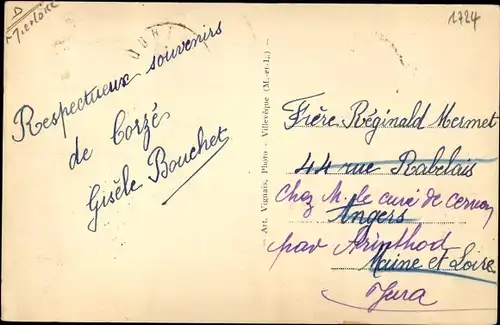 1724
Respectueux souvenirs
de Corzé
Gisèle Bouchet
Art. Vignais, Photo - Villevêque (M.-et-L.)
Frère Réginald Mermet
44 rue Rabelais
Chez M. le curé de Cernon
Angers
par Arinthod
Maine et Loire
Jura